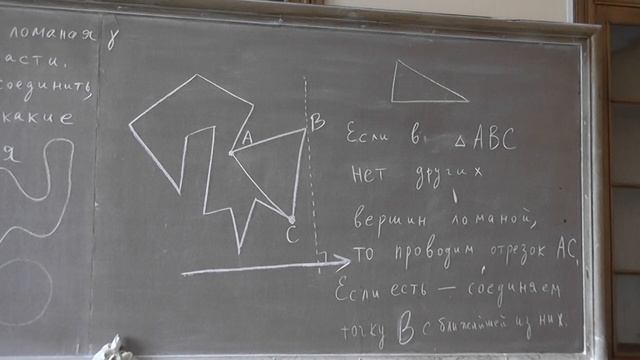 ломаная γ
асти.
соединить,
какие
я
A
B
C
Если в △ABC
нет других
вершин ломаной,
то проводим отрезок AC,
Если есть — соединяем
точку B с ближайшей из них.